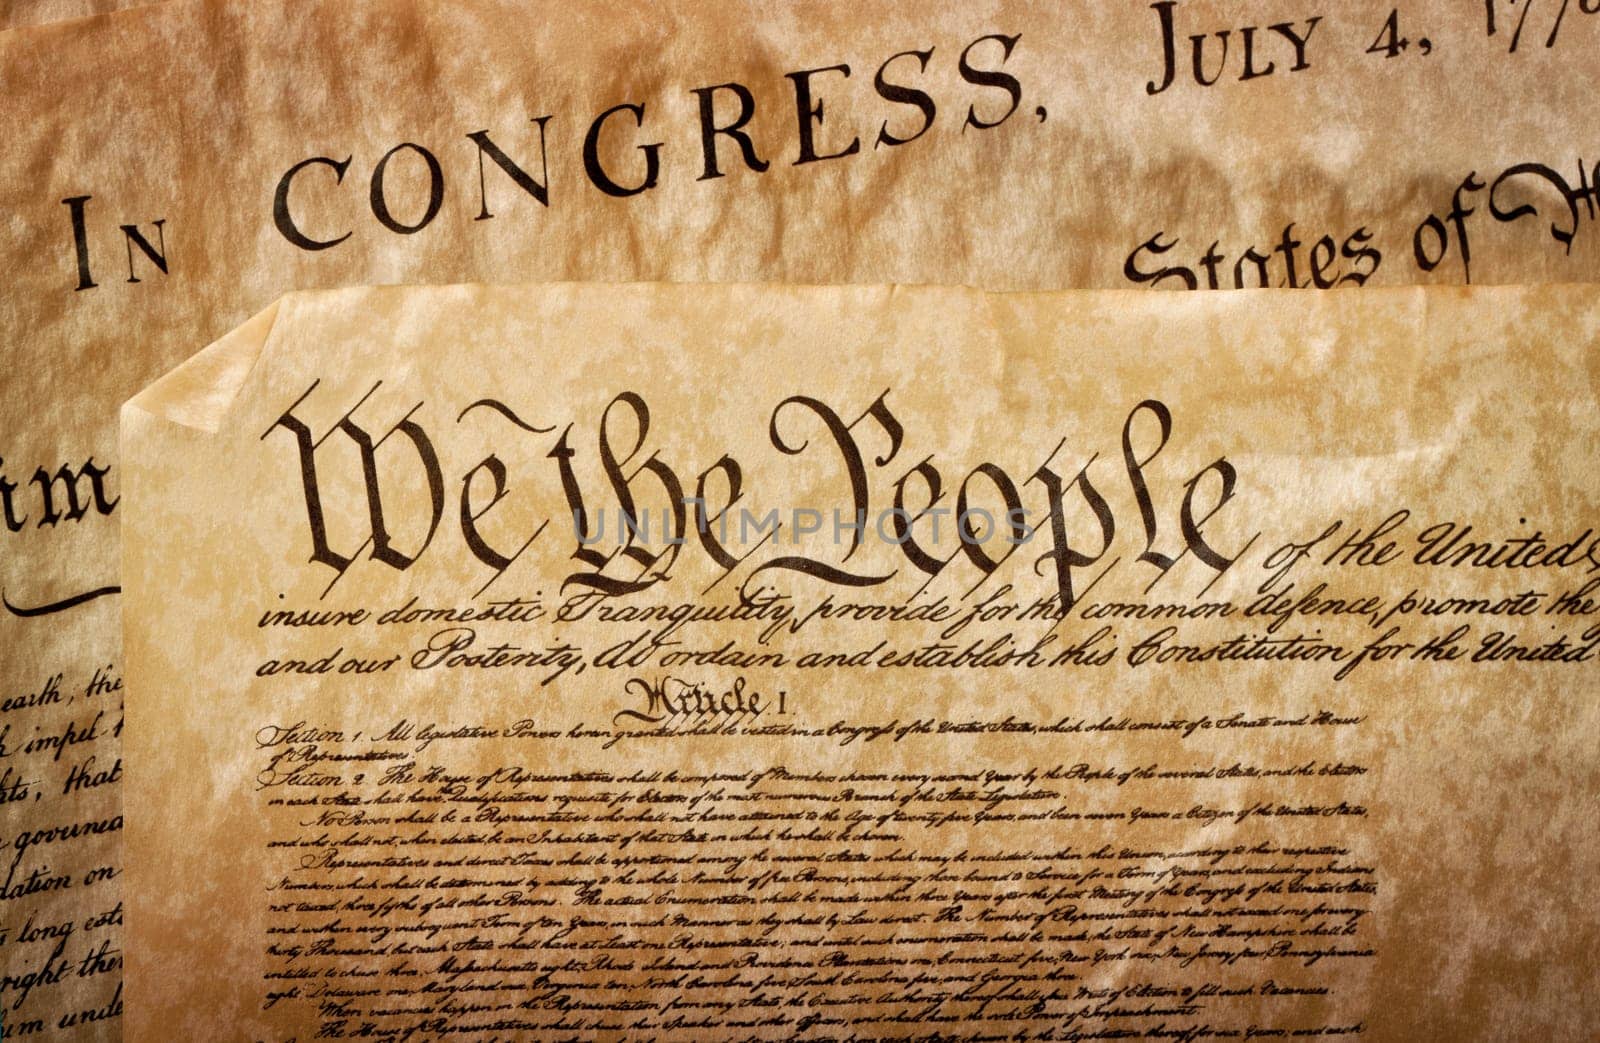 In CONGRESS, July 4, 1776
States of
earth, the
impel
that
dation on
long esta
right
um unde
We the People of the United
insure domestic Tranquility, provide for the common defence, promote the
and our Posterity, do ordain and establish this Constitution for the United
Article I.
Section 1. All legislative Powers herein granted shall be vested in a Congress of the United States, which shall consist of a Senate and House
of Representatives.
Section 2. The House of Representatives shall be composed of Members chosen every second Year by the People of the several States, and the Electors
in each State shall have the Qualifications requisite for Electors of the most numerous Branch of the State Legislature.
No Person shall be a Representative who shall not have attained to the Age of twenty five Years, and been seven Years a Citizen of the United States,
and who shall not, when elected, be an Inhabitant of that State in which he shall be chosen.
Representatives and direct Taxes shall be apportioned among the several States which may be included within this Union, according to their respective
Numbers, which shall be determined by adding to the whole Number of free Persons, including those bound to Service for a Term of Years, and excluding Indians
not taxed, three fifths of all other Persons. The actual Enumeration shall be made within three Years after the first Meeting of the Congress of the United States,
and within every subsequent Term of ten Years, in such Manner as they shall by Law direct. The Number of Representatives shall not exceed one for every
thirty Thousand, but each State shall have at Least one Representative; and until such enumeration shall be made, the State of New Hampshire shall be
entitled to chuse three, Massachusetts eight, Rhode Island and Providence Plantations one, Connecticut five, New York six, New Jersey four, Pennsylvania
eight, Delaware one, Maryland six, Virginia ten, North Carolina five, South Carolina five, and Georgia three.
When vacancies happen in the Representation from any State, the Executive Authority thereof shall issue Writs of Election to fill such Vacancies.
The House of Representatives shall chuse their Speaker and other Officers; and shall have the sole Power of Impeachment.
UNLIMPHOTOS